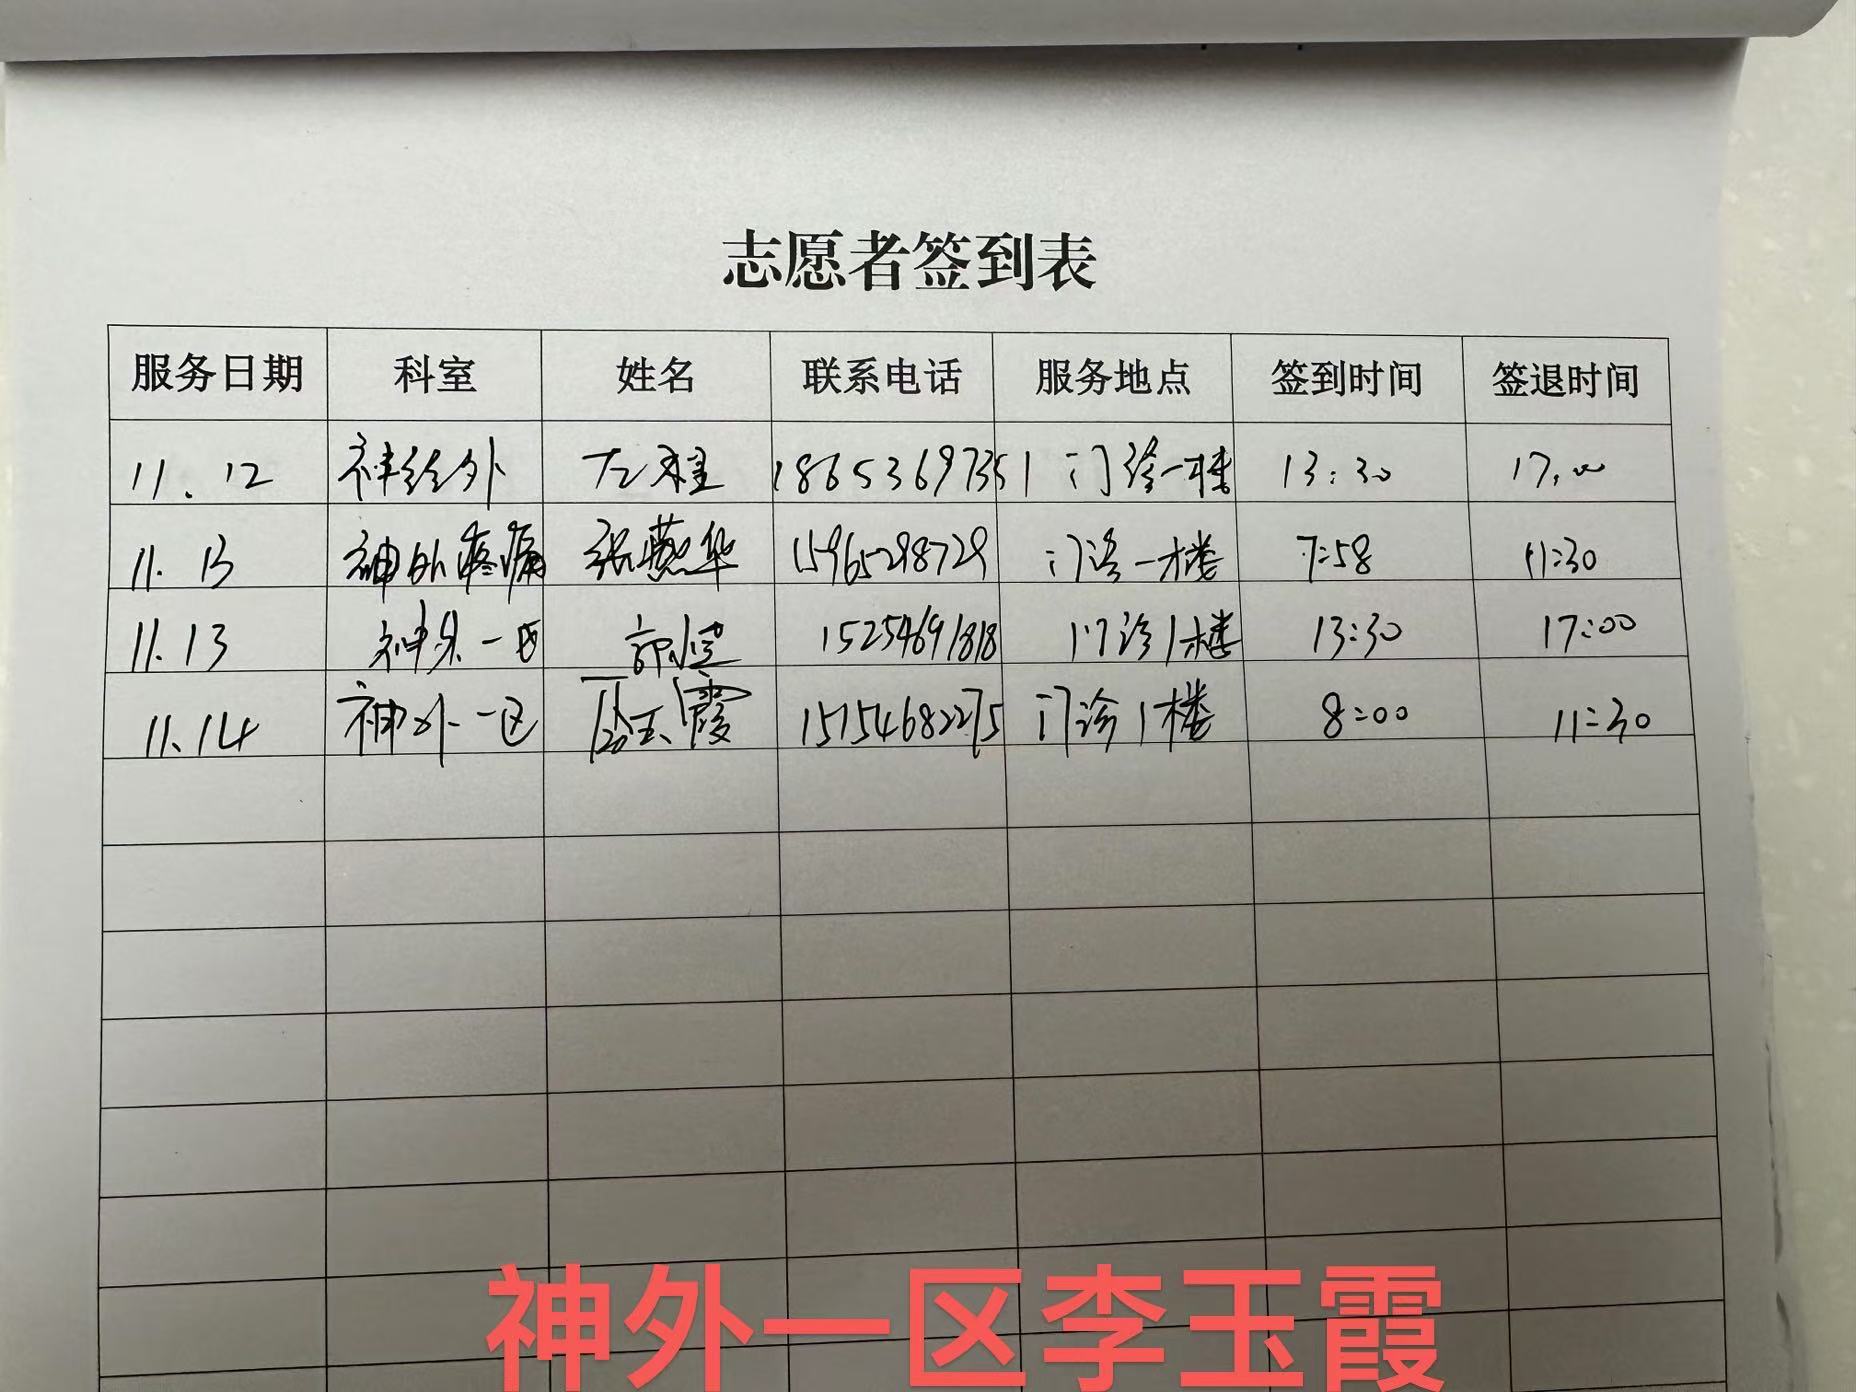 志愿者签到表
服务日期 科室 姓名 联系电话 服务地点 签到时间 签退时间
11.12 神经外 左程 18653697351 门诊一楼 13:30 17:00
11.13 神外疼痛 张燕华 15965298729 门诊一楼 7:58 11:30
11.13 神外一区 15254691818 门诊1楼 13:30 17:00
11.14 神外一区 玉霞 15154682275 门诊1楼 8:00 11:30
神外一区李玉霞